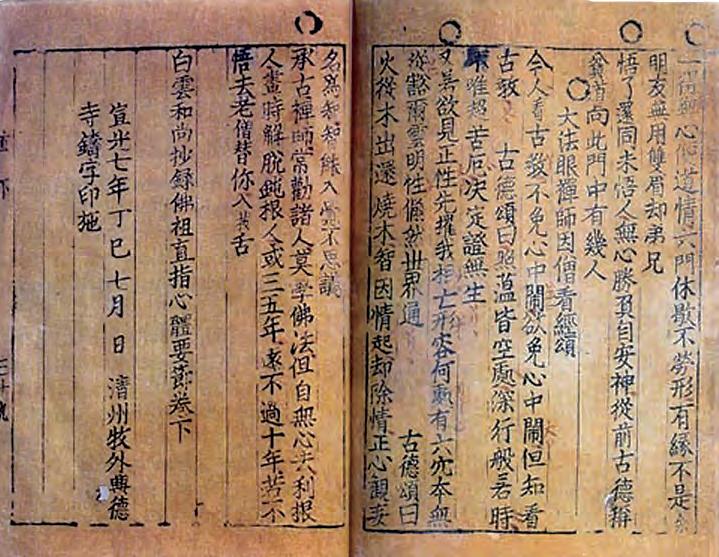 一得無心便道情六門休歇不勞形有緣不是
明友無用雙眉却弟兄
悟了還同未悟人無心勝負自安神從前古德稱
向此門中有幾人
○大法眼禪師因僧看經頌
今人看古教不免心中鬧欲免心中鬧但知看
古教 古德頌曰照蘊皆空處深行般若時
唯超苦厄決定證無生
又若欲見正性先摧我相亡形容何處有六本無
從豁爾雲明性翛然世界通 古德頌曰
火從木出還燒木智因情起却除情正心觀妄
名爲知智能入不思議
承古禪師常勸諸人莫學佛法但自無心去利根
人晝時解脫鈍根人或三五年遠不過十年若不
悟去老僧替你入拔舌
白雲和尚抄錄佛祖直指心體要節卷下
宣光七年丁巳七月 日 清州牧外興德
寺鑄字印施
下 三十九